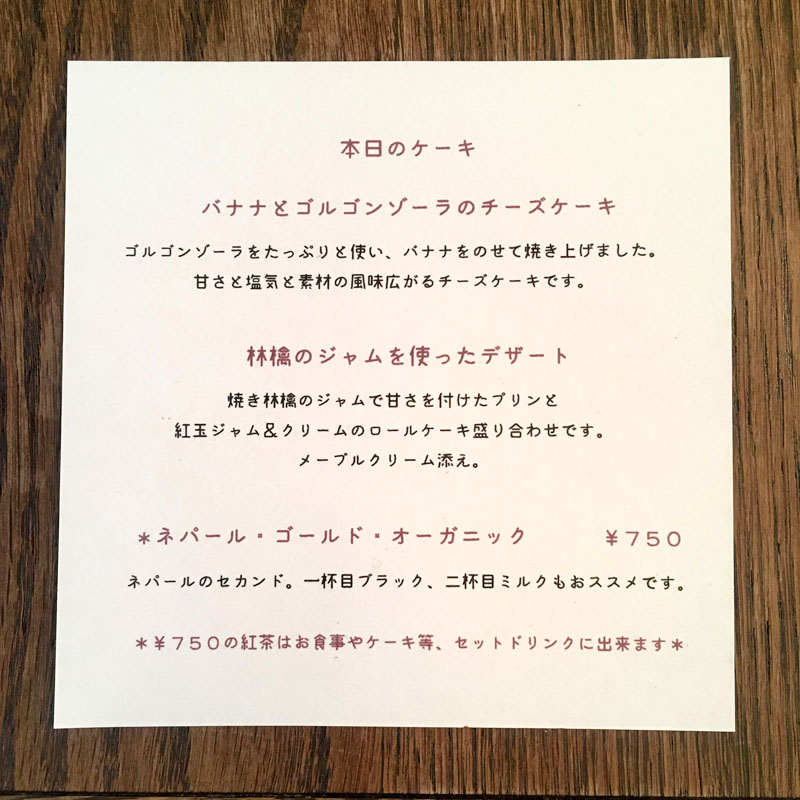 本日のケーキ
バナナとゴルゴンゾーラのチーズケーキ
ゴルゴンゾーラをたっぷりと使い、バナナをのせて焼き上げました。
甘さと塩気と素材の風味広がるチーズケーキです。
林檎のジャムを使ったデザート
焼き林檎のジャムで甘さを付けたプリンと
紅玉ジャム&クリームのロールケーキ盛り合わせです。
メープルクリーム添え。
*ネパール・ゴールド・オーガニック ¥750
ネパールのセカンド。一杯目ブラック、二杯目ミルクもおススメです。
*¥750の紅茶はお食事やケーキ等、セットドリンクに出来ます*